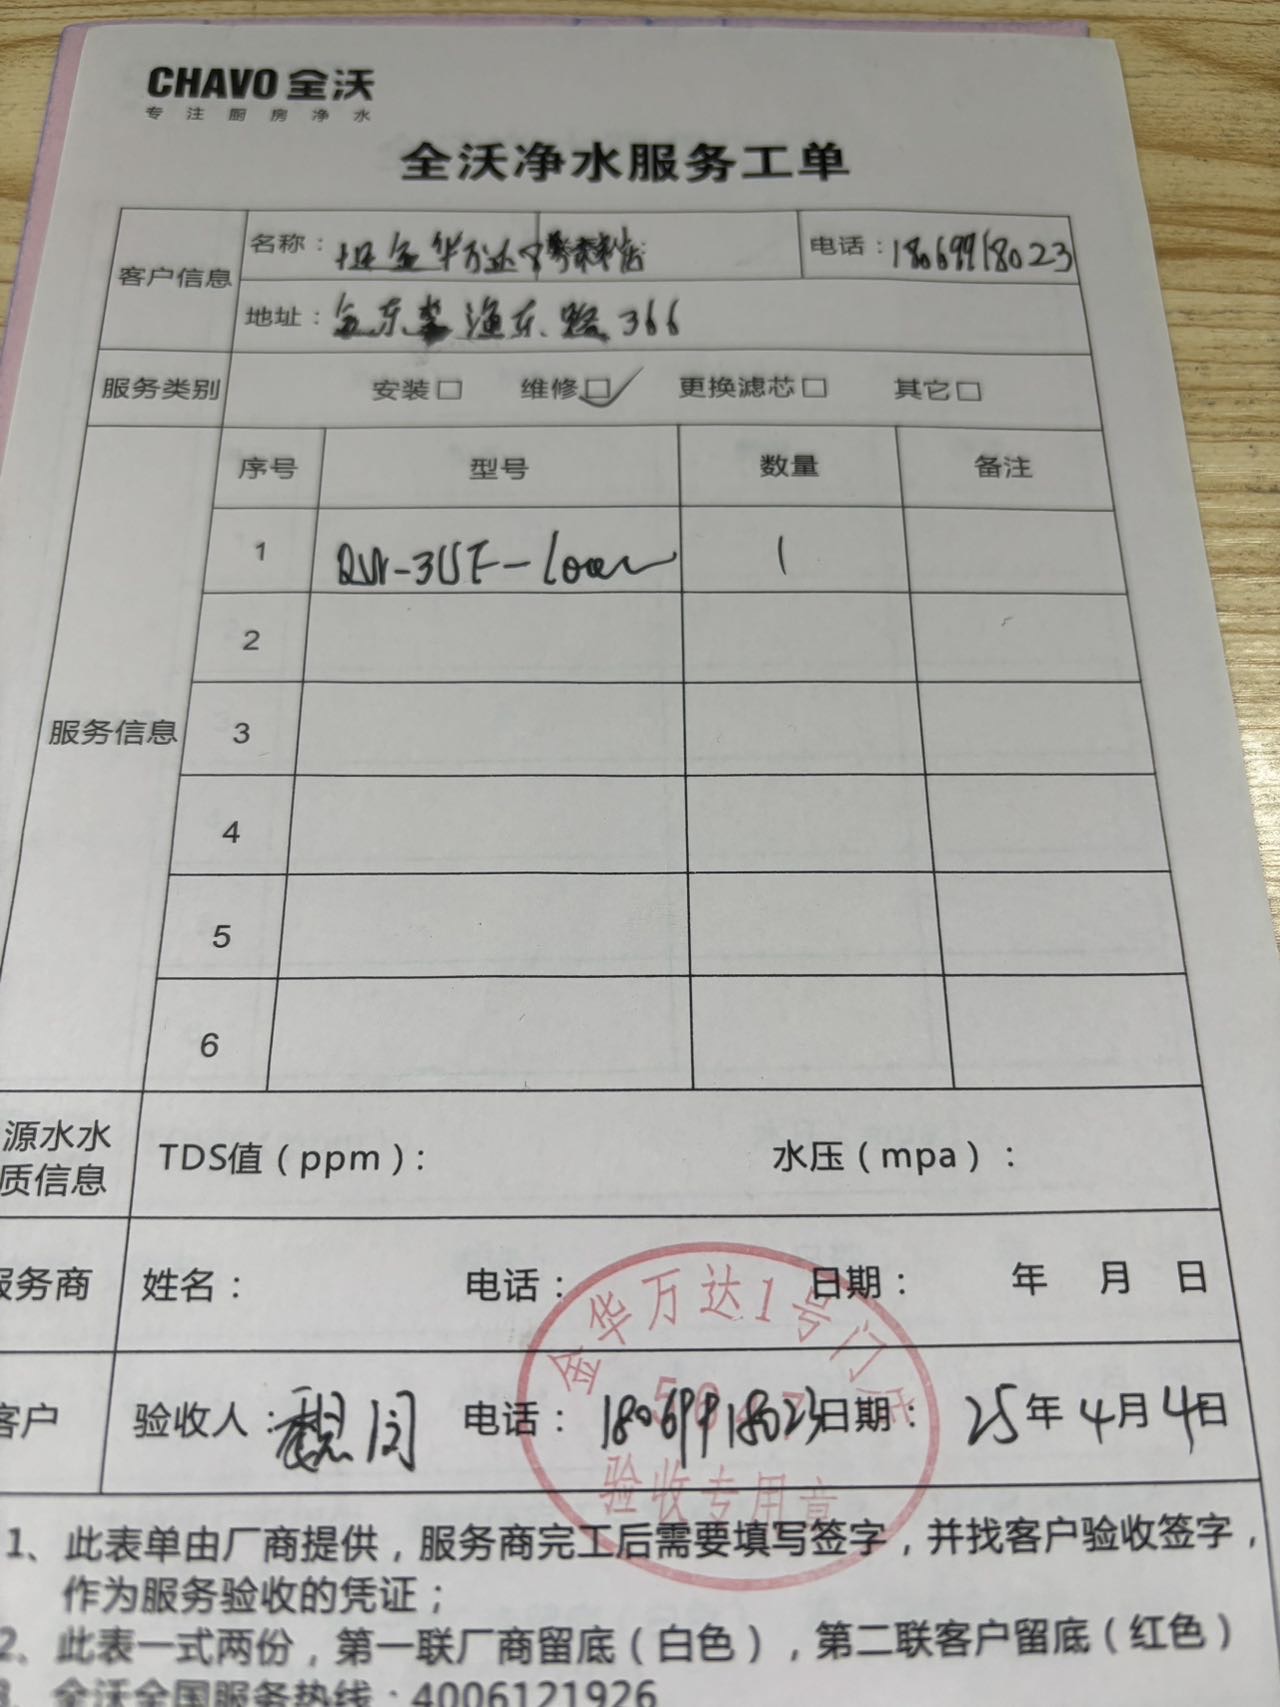 CHAVO 全沃
专注厨房净水
全沃净水服务工单
客户信息
名称： 金华万达 电话：18069918023
地址：金东 渔东路366
服务类别 安装□ 维修□✓ 更换滤芯□ 其它□
服务信息
序号 型号 数量 备注
1 1
2
3
4
5
6
源水水质信息 TDS值（ppm）： 水压（mpa）：
服务商 姓名： 电话： 日期： 年 月 日
客户 验收人： 电话：18069918023 日期：25年4月4日
金华万达1号门店
验收专用章
1、此表单由厂商提供，服务商完工后需要填写签字，并找客户验收签字，
作为服务验收的凭证；
2、此表一式两份，第一联厂商留底（白色），第二联客户留底（红色）
3、全沃全国服务热线：4006121926